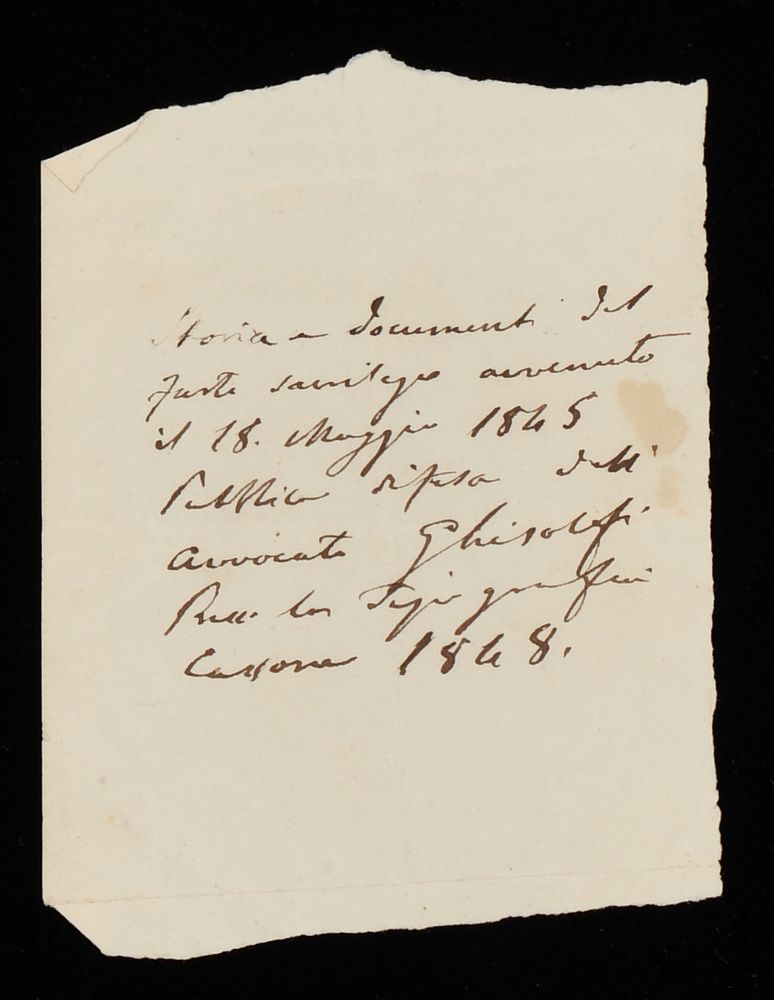 Storia e documenti del
furto sacrilego avvenuto
il 18. Maggio 1845
Pubblica difesa dell'
avvocato Ghisolfi
la Tipografia
Cassone 1848.